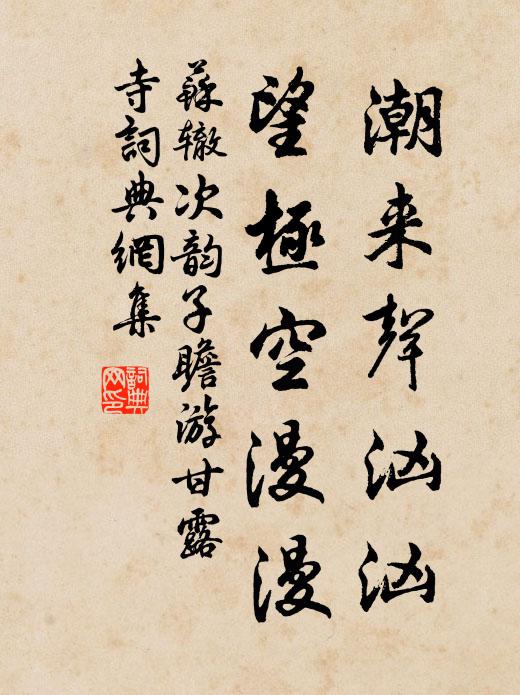 潮来聲汹汹
望極空漫漫
蘇辙次韵子瞻游甘露
寺詞典網集
詞典
网印